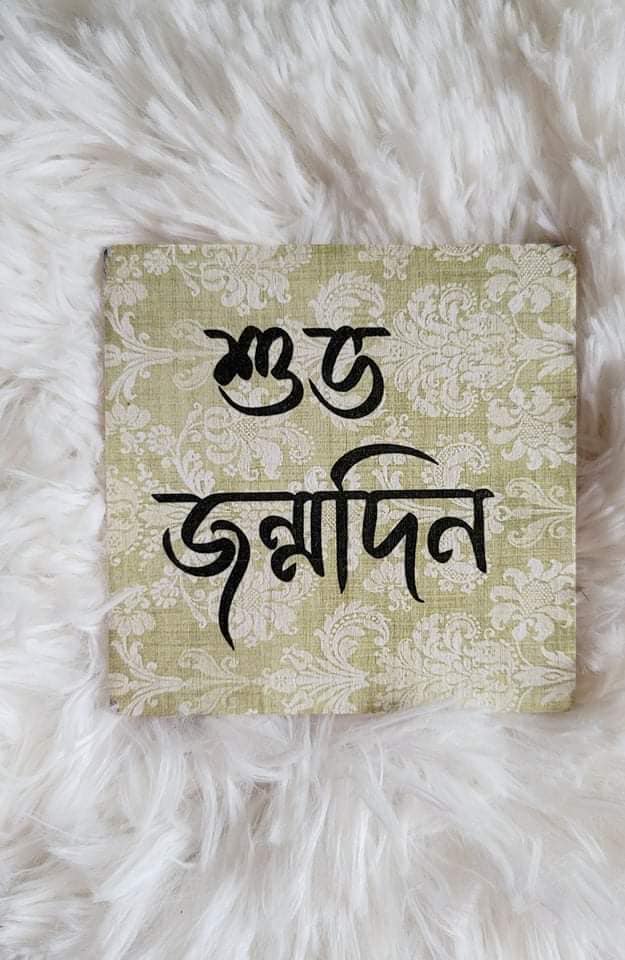 শুভ
জন্মদিন